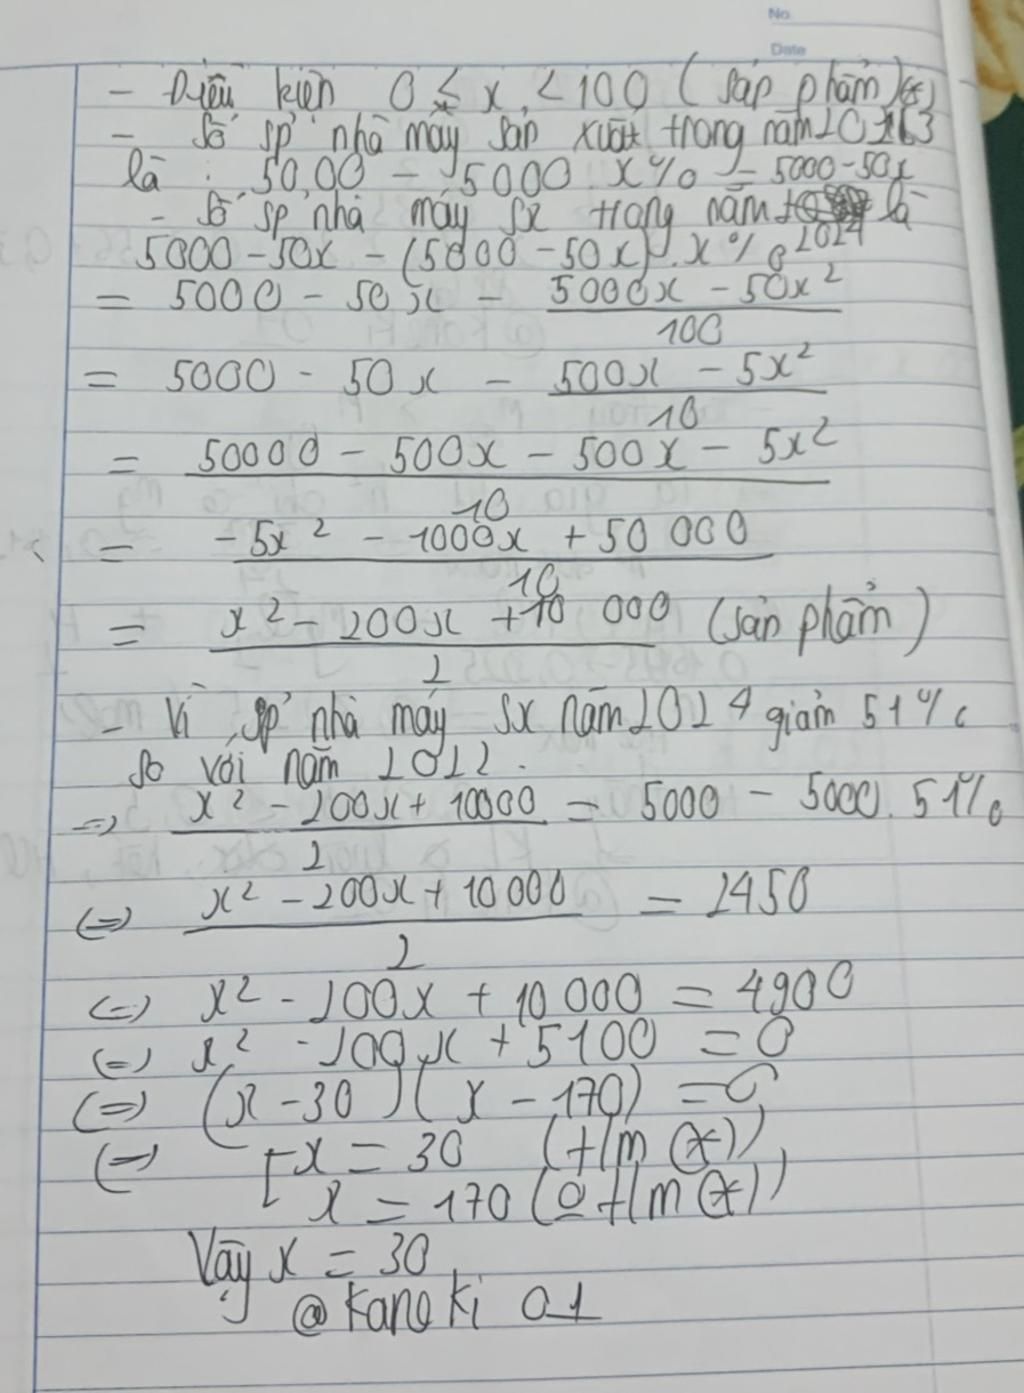 No.
Date
- Điều kiện 0 ≤ x < 100 (sản phẩm) (*)
- Số sp nhà máy sản xuất trong năm 2023
là : 5000 - 5000 . x% = 5000 - 50x
- Số sp nhà máy sx trong năm 2024 là
5000 - 50x - (5000 - 50x) . x%
= 5000 - 50x - (5000x - 50x²)/100
= 5000 - 50x - (500x - 5x²)/10
= (50000 - 500x - 500x - 5x²)/10
= (-5x² - 1000x + 50 000)/10
= (x² - 200x + 10 000)/2 (sản phẩm)
- Vì sp nhà máy sx năm 2024 giảm 51%
so với năm 2022.
=> (x² - 200x + 10000)/2 = 5000 - 5000. 51%
(=) (x² - 200x + 10 000)/2 = 2450
(=) x² - 200x + 10 000 = 4900
(=) x² - 200x + 5100 = 0
(=) (x - 30)(x - 170) = 0
(=) [ x = 30 (t/m (*))
x = 170 (0 t/m (*))
Vậy x = 30
@Kaneki 01